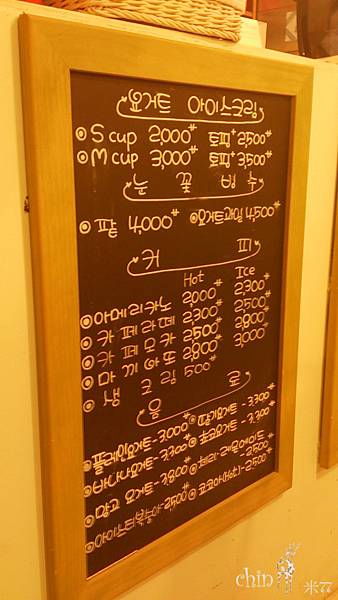 요거트 아이스크림
◉ S cup 2,000₩ 토핑+ 2,500₩
◉ M cup 3,000₩ 토핑+ 3,500₩
눈 꽃 빙 수
◉ 팥 4,000₩ ◉ 요거트과일 4,500₩
커 피
Hot Ice
◉ 아메리카노 2,000₩ 2,300₩
◉ 카페라떼 2,300₩ 2,500₩
◉ 카페모카 2,500₩ 2,800₩
◉ 마끼아또 2,800₩ 3,000₩
◉ 샷 추 500₩
음 료
◉ 플레인요거트 - 3,000₩ ◉ 딸기요거트 - 3,300₩
◉ 바나나요거트 - 3,300₩ ◉ 초코요거트 - 3,300₩
◉ 망고 요거트 - 3,800₩ ◉ 체리·레몬에이드 - 2,500₩
◉ 아이스티(복숭아) - 2,500₩ ◉ 코코아(Hot) - 2,500₩
chin 米77